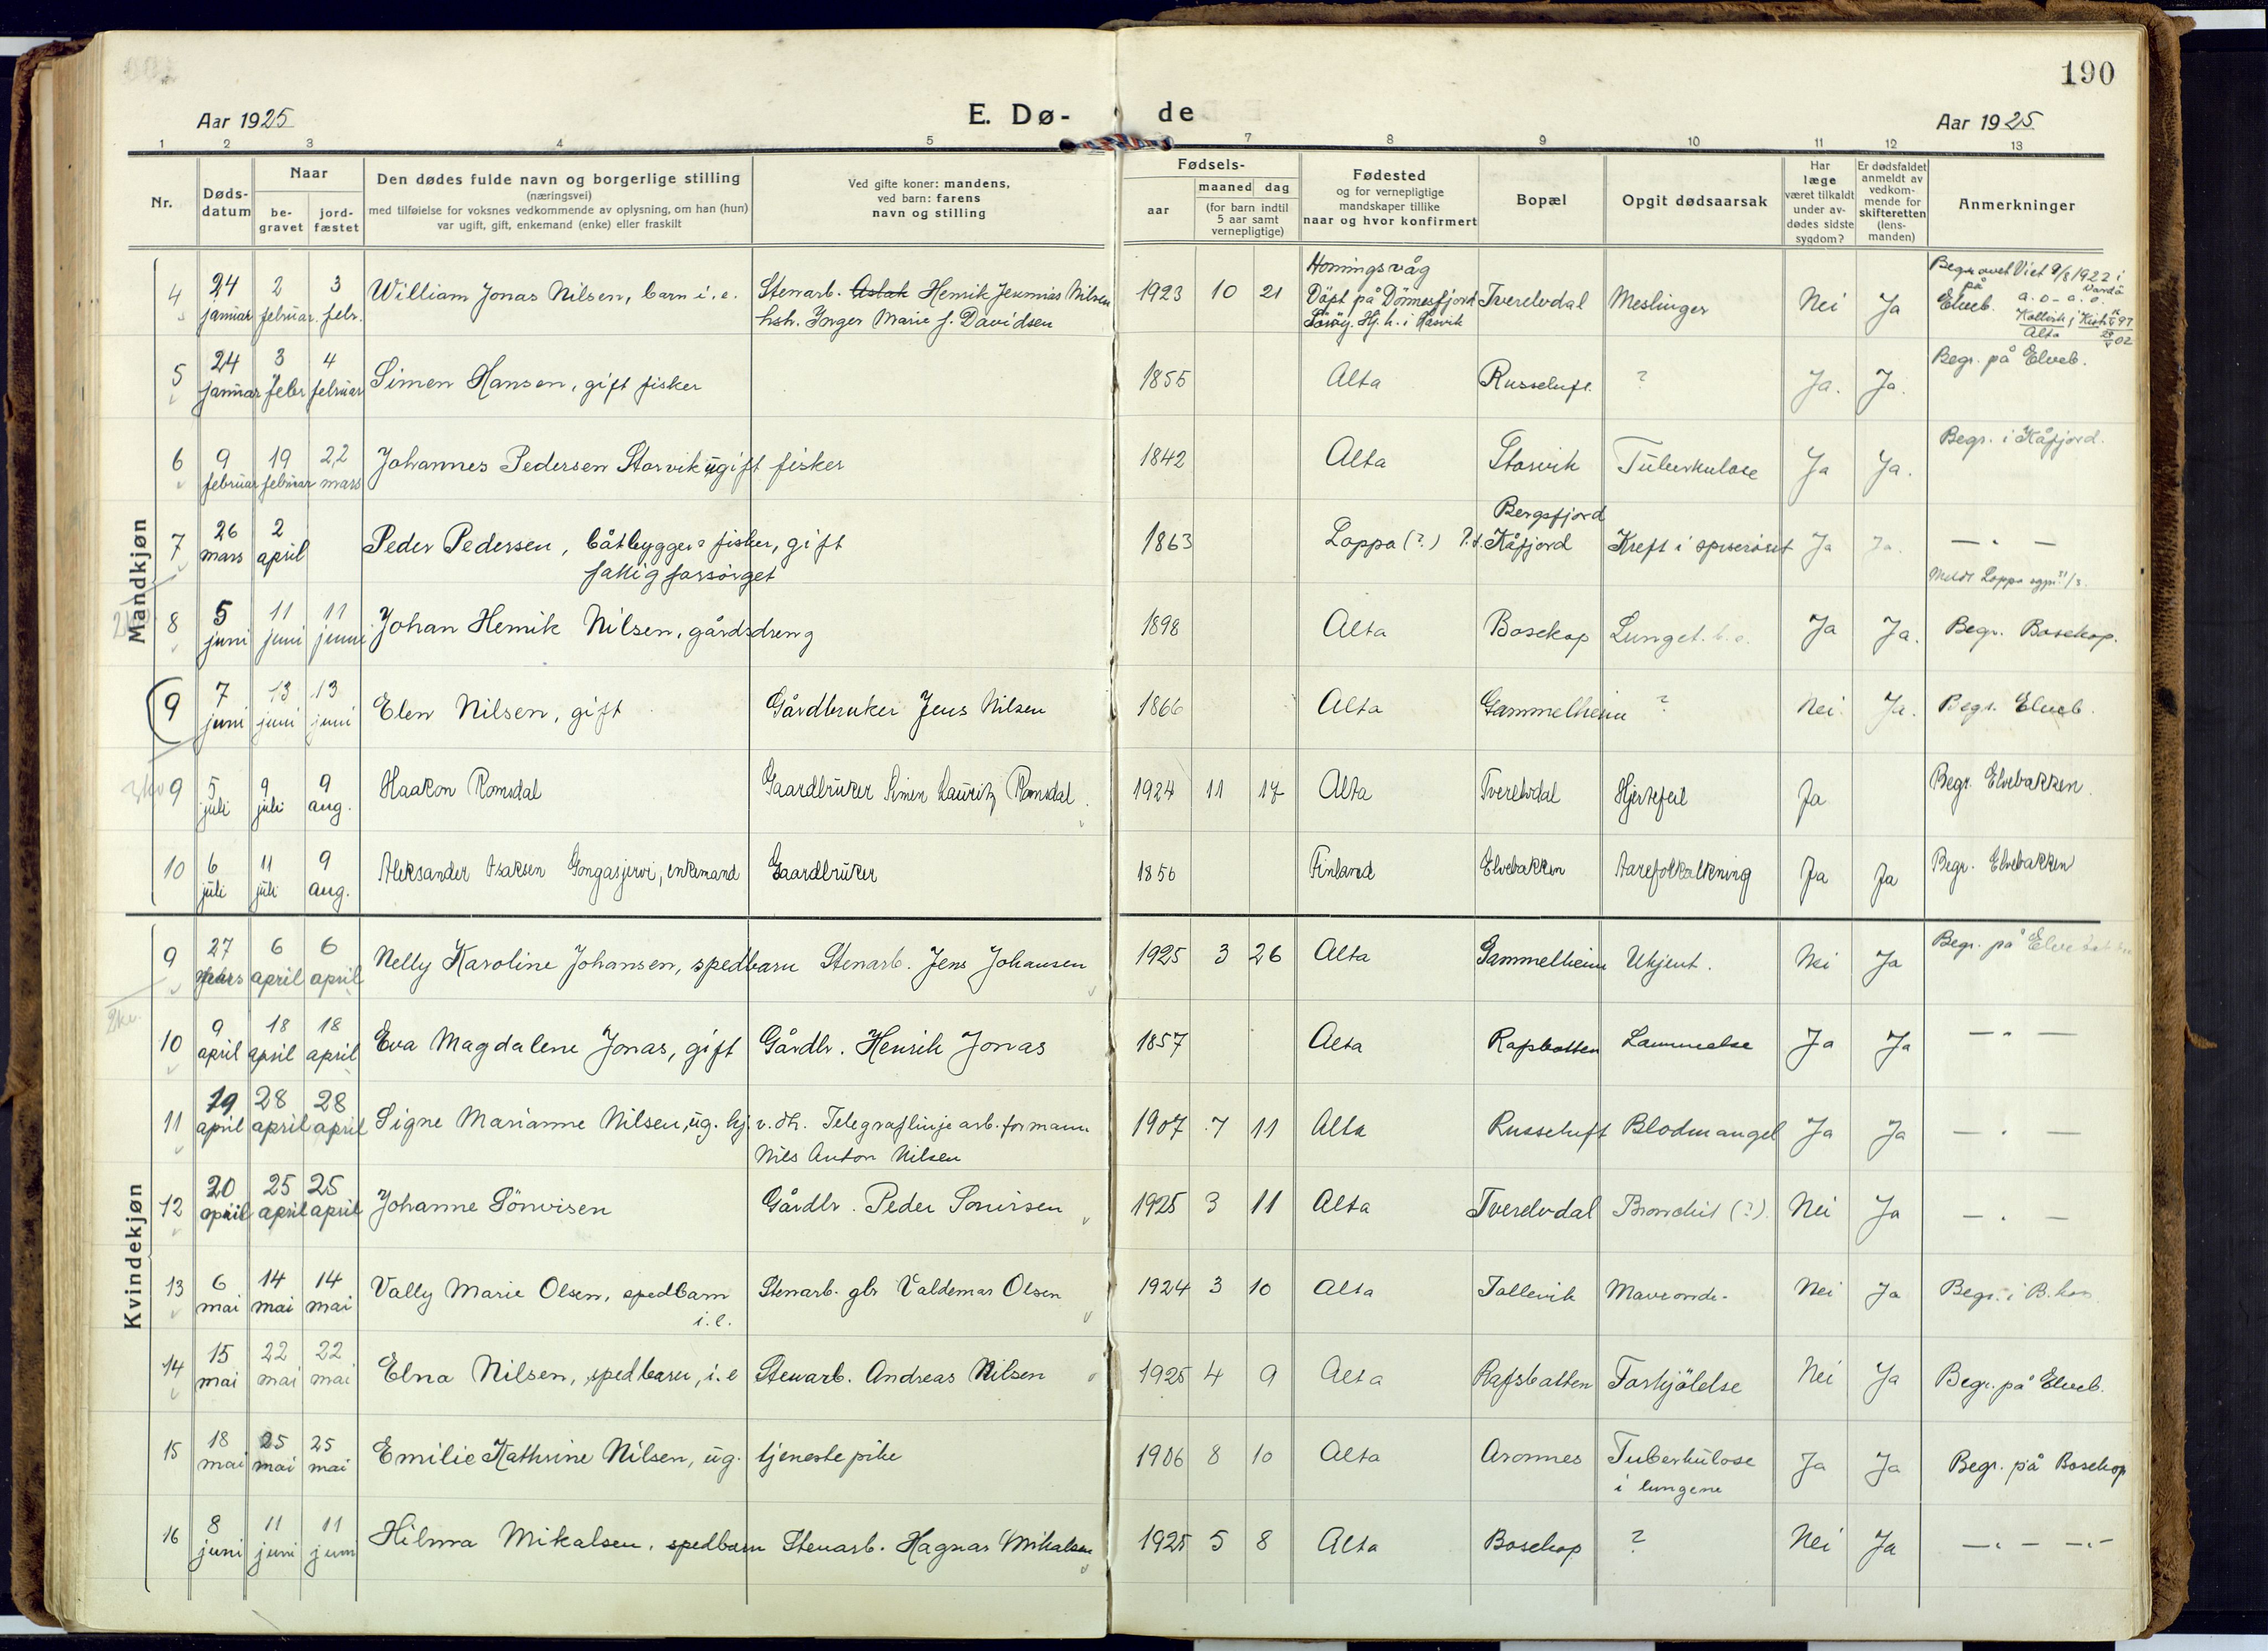 190
Aar 1925
E. Dø-
de
Aar 1925
1 2 3 4 5 7 8 9 10 11 12 13
Nr.
Døds-
datum
Naar
be-
gravet
jord-
fæstet
Den dødes fulde navn og borgerlige stilling
(næringsvei)
med tilføielse for voksnes vedkommende av oplysning, om han (hun)
var ugift, gift, enkemand (enke) eller fraskilt
Ved gifte koner: mandens,
ved barn: farens
navn og stilling
Fødsels-
aar
maaned dag
(for barn indtil
5 aar samt
vernepligtige)
Fødested
og for vernepligtige
mandskaper tillike
naar og hvor konfirmert
Bopæl
Opgit dødsaarsak
Har
læge
været tilkaldt
under av-
dødes sidste
sygdom?
Er dødsfaldet
anmeldt av
vedkom-
mende for
skifteretten
(lens-
manden)
Anmerkninger
Mandkjøn
4 24 januar 2 februar 3 febr. William Jonas Nilsen, barn i. e. Stenarb. Aslak Henrik Jeremias Nilsen 1923 10 21 Honningsvåg Tverelvdal Meslinger Nei Ja
hstr. Inger Marie f. Davidsen
Döpt på Dönnesfjord
Hj. h. i Hasvik
Viet 9/8 1922 i
Vardö
på
Elveb. a. o - a. o.
Alta
5 24 januar 3 febr 4 februar Simen Hansen, gift fisker 1855 Alta Russeluft ? Ja. Ja. Begr. på Elveb.
6 9 februar 19 februar 22 mars Johannes Pedersen Storvik ugift fisker 1842 Alta Storvik Tuberkulose Ja Ja. Begr. i Kåfjord.
7 26 mars 2 april Peder Pedersen, båtbygger & fisker, gift 1863 Loppa (?) Bergsfjord
?.t. Kåfjord Kreft i spiserøret Ja Ja. — . —
fattigforsörget
Meldt Loppa
8 5 juni 11 juni 11 juni Johan Henrik Nilsen, gårdsdreng 1898 Alta Bosekop Lunget. b. e. Ja Ja. Begr. Bosekop.
9 7 juni 13 juni 13 juni Elen Nilsen, gift Gårdbruker Jens Nilsen 1866 Alta Gammelheim ? Nei Ja. Begr. Elveb.
9 5 juli 9 juli 9 aug. Haakon Romsdal Gaardbruker Simen Lauritz Romsdal 1924 11 17 Alta Tverelvdal Hjertefeil Ja Begr. Elvebakken.
10 6 juli 11 juli 9 aug. Aleksander Isaksen Gongasjervi, enkemand Gaardbruker 1856 Finland Elvebakken Aareforkalkning Ja Ja Begr. Elvebakken
Kvindekjøn
9 27 mars 6 april 6 april Nelly Karoline Johansen, spedbarn Stenarb. Jens Johansen 1925 3 26 Alta Gammelheim Ukjent. Nei Ja Begr. på Elvebakken
2kv.
10 9 april 18 april 18 april Eva Magdalene Jonas, gift Gårdbr. Henrik Jonas 1857 Alta Rafsbotten Lammelse Ja Ja — " —
11 19 april 28 april 28 april Signe Marianne Nilsen, ug. hj. v. dtr. Telegraflinjearb.formann 1907 7 11 Alta Russeluft Blodmangel Ja Ja — . —
Nils Anton Nilsen
12 20 april 25 april 25 april Johanne Sönvisen Gårdbr. Peder Sönvisen 1925 3 11 Alta Tverelvdal Bronchit (?). Nei Ja — . —
13 6 mai 14 mai 14 mai Vally Marie Olsen, spedbarn Stenarb. gbr Valdemar Olsen 1924 3 10 Alta Tallevik Maveonde. Nei Ja Begr. i B.kop.
i.e.
14 15 mai 22 mai 22 mai Elna Nilsen, spedbarn, i.e Stenarb. Andreas Nilsen 1925 4 9 Alta Rafsbotten Forkjölelse Nei Ja Begr. på Elveb.
15 18 mai 25 mai 25 mai Emilie Kathrine Nilsen, ug. tjenestepike 1906 8 10 Alta Aronnes Tuberkulose Ja Ja Begr. på Bosekop
i lungene
16 8 juni 11 juni 11 juni Hilma Mikalsen, spedbarn Stenarb. Hagnar Mikalsen 1925 5 8 Alta Bosekop ? Nei Ja — . — — . —